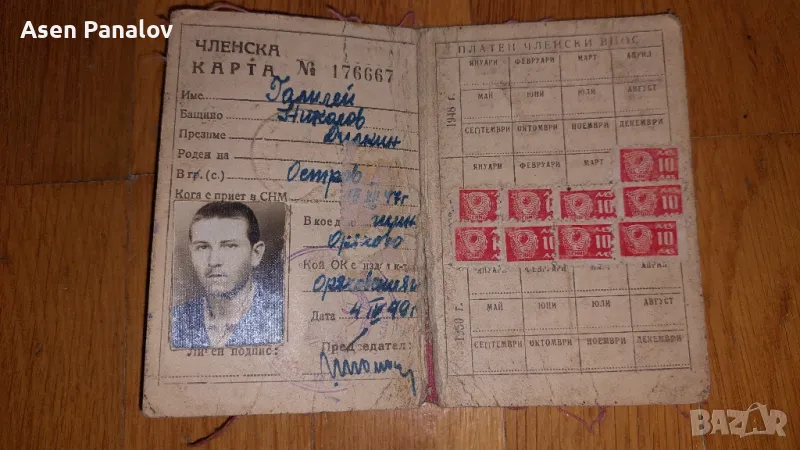 Asen Panalov
ЧЛЕНСКА
КАРТА № 176667
Име Галилей
Бащино Николов
Презиме
Роден на
В гр. (с.) Остров
Кога е приет в СНМ 47 г
В кое д-во
Оряхово
Кой ОК е издал к-та
Оряховския
Дата 4 IV 49 г
Личен подпис: Председател:
ПЛАТЕН ЧЛЕНСКИ ВНОС
1948 г.
ЯНУАРИ ФЕВРУАРИ МАРТ АПРИЛ
МАЙ ЮНИ ЮЛИ АВГУСТ
СЕПТЕМВРИ ОКТОМВРИ НОЕМВРИ ДЕКЕМВРИ
ЯНУАРИ ФЕВРУАРИ МАРТ
10
10 10
10 10 10
1950 г.
ЯНУАРИ ФЕВРУАРИ МАРТ АПРИЛ
МАЙ ЮНИ ЮЛИ АВГУСТ
СЕПТЕМВРИ ОКТОМВРИ НОЕМВРИ ДЕКЕМВРИ
BAZAR